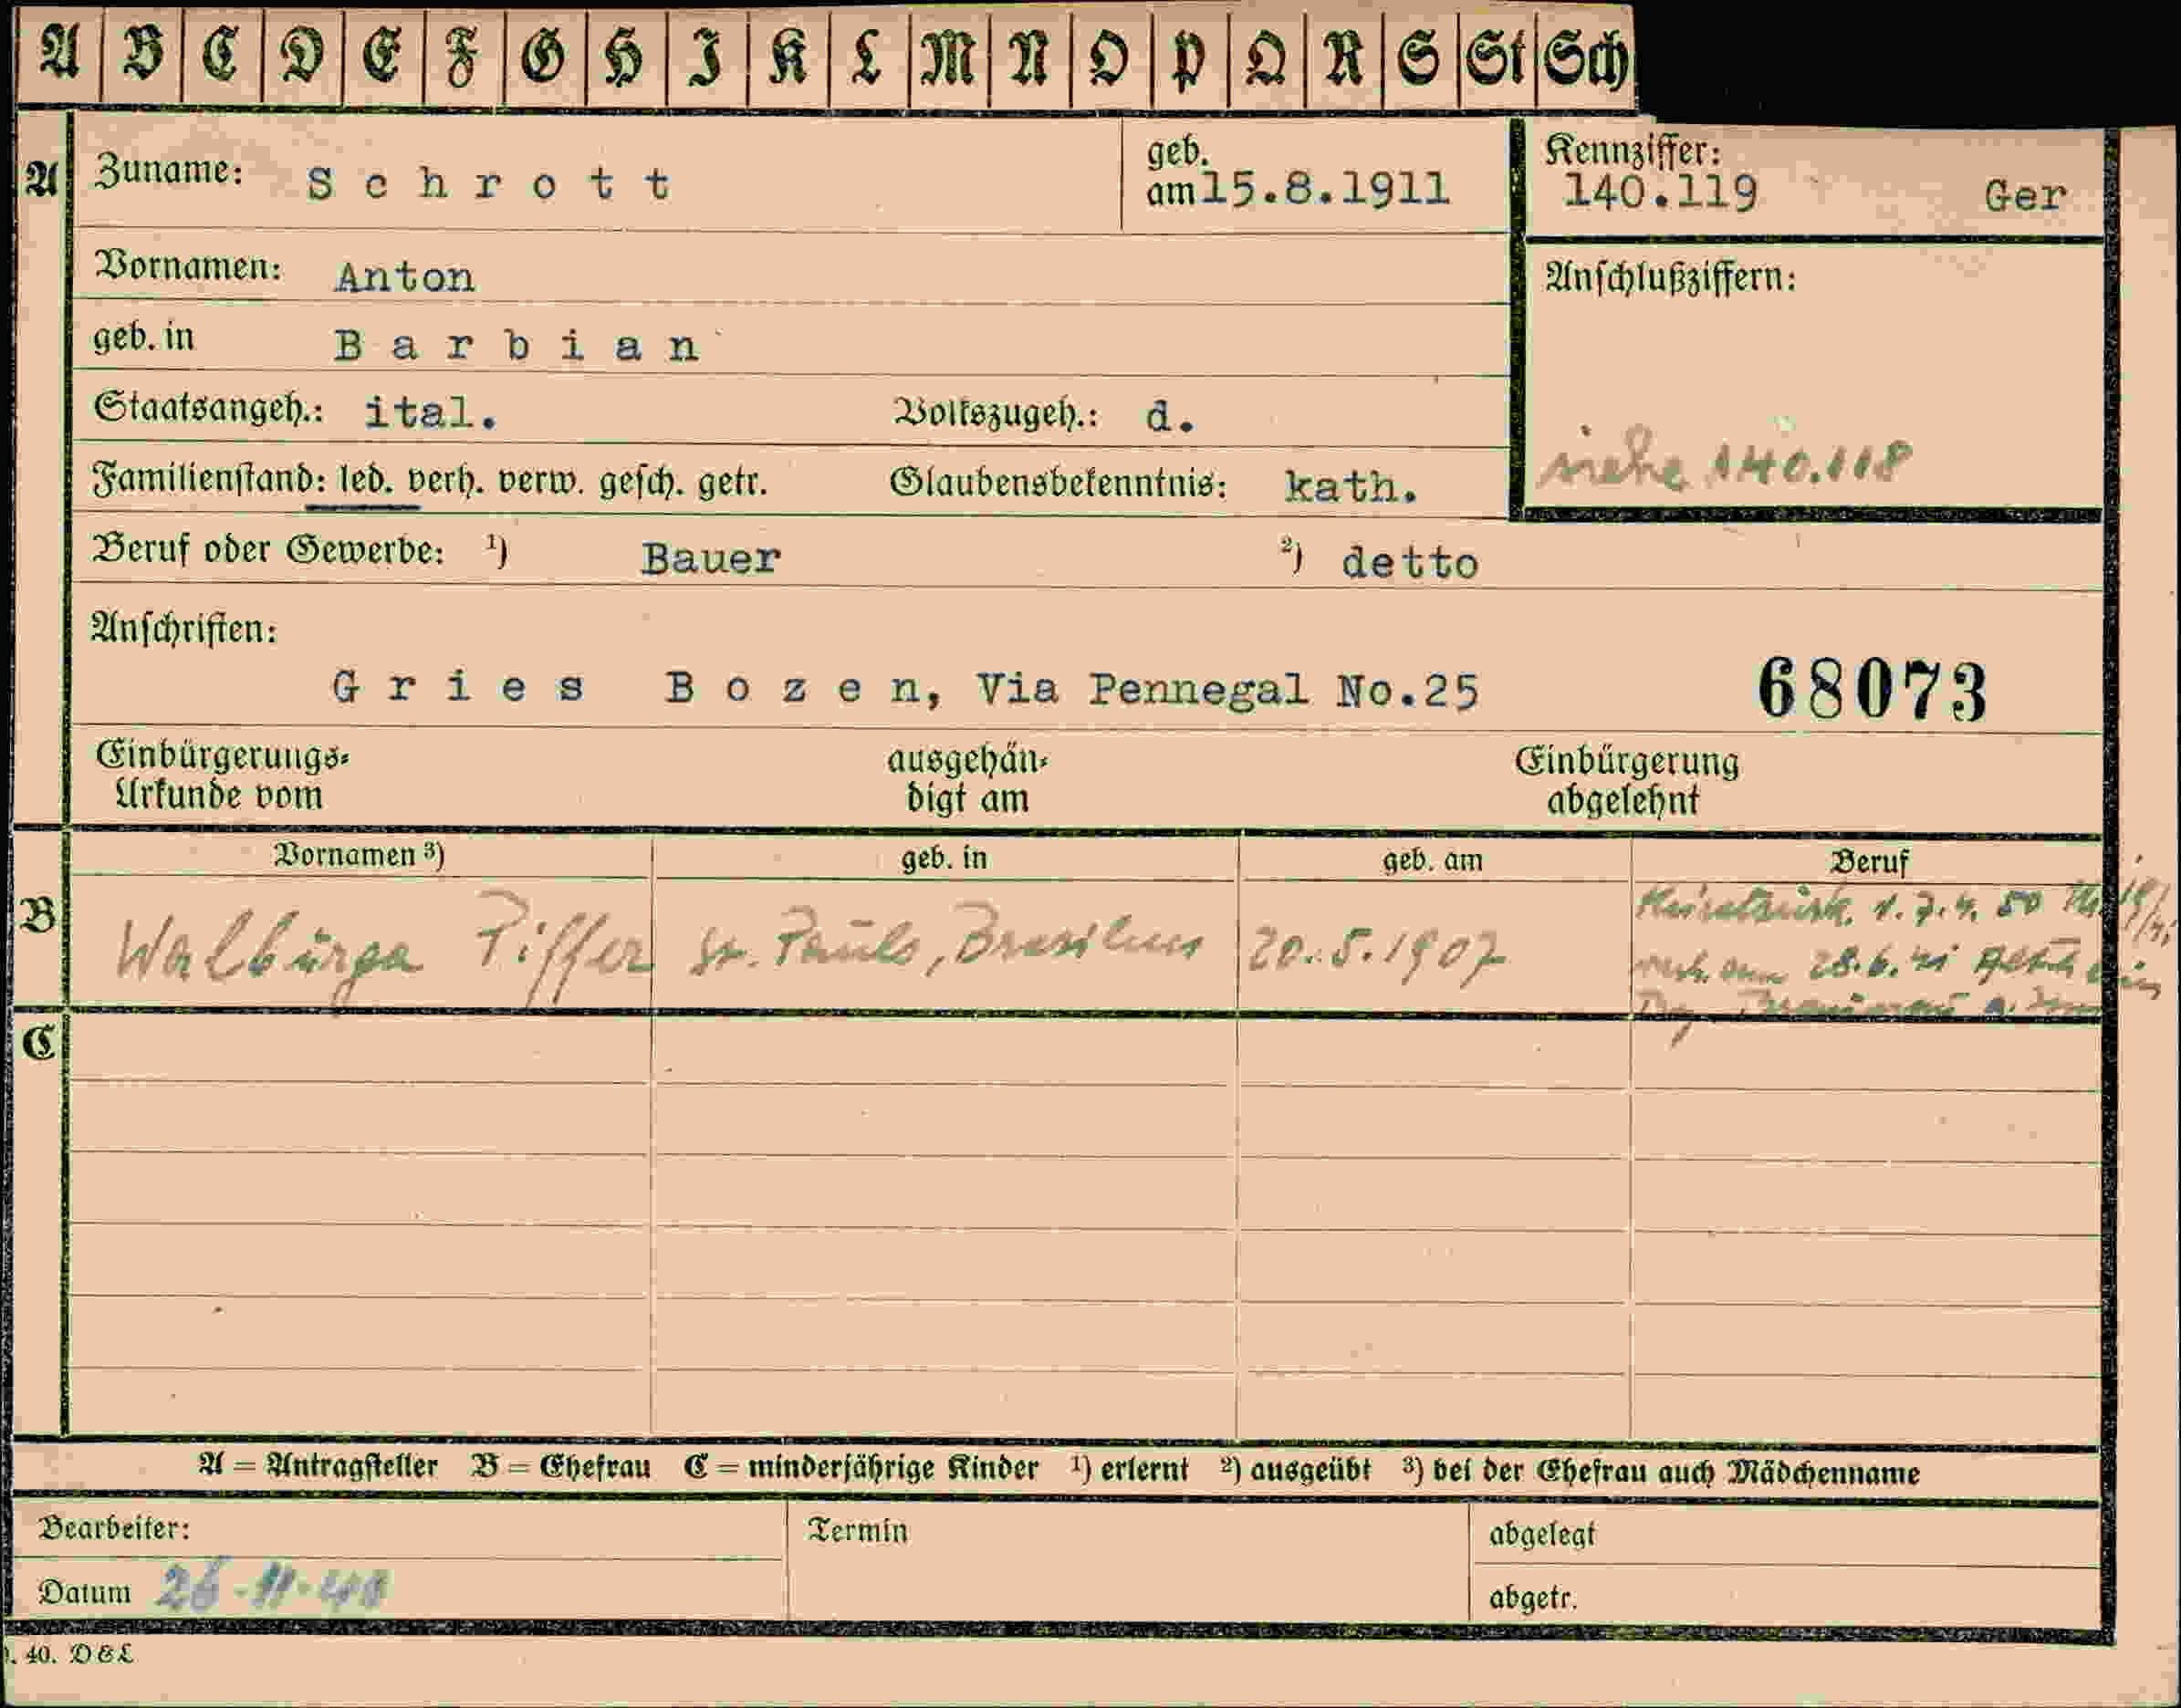 A B C D E F G H I K L M N O P Q R S St Sch
A Zuname: Schrott geb. am 15.8.1911 Kennziffer: 140.119 Ger
Vornamen: Anton Anschlußziffern:
geb. in Barbian
Staatsangeh.: ital. Volkszugeh.: d.
siehe 140.118
Familienstand: led. verh. verw. gesch. getr. Glaubensbekenntnis: kath.
Beruf oder Gewerbe: ¹) Bauer ²) detto
Anschriften:
Gries Bozen, Via Pennegal No.25 68073
Einbürgerungs- ausgehän- Einbürgerung
Urkunde vom digt am abgelehnt
B Vornamen ³) geb. in geb. am Beruf
Walburga Piffer St. Pauls, Brasilien 20.5.1907
28.6.41
C
A = Antragsteller B = Ehefrau C = minderjährige Kinder ¹) erlernt ²) ausgeübt ³) bei der Ehefrau auch Mädchenname
Bearbeiter: Termin abgelegt
Datum 26-11-40 abgetr.
40. D&L